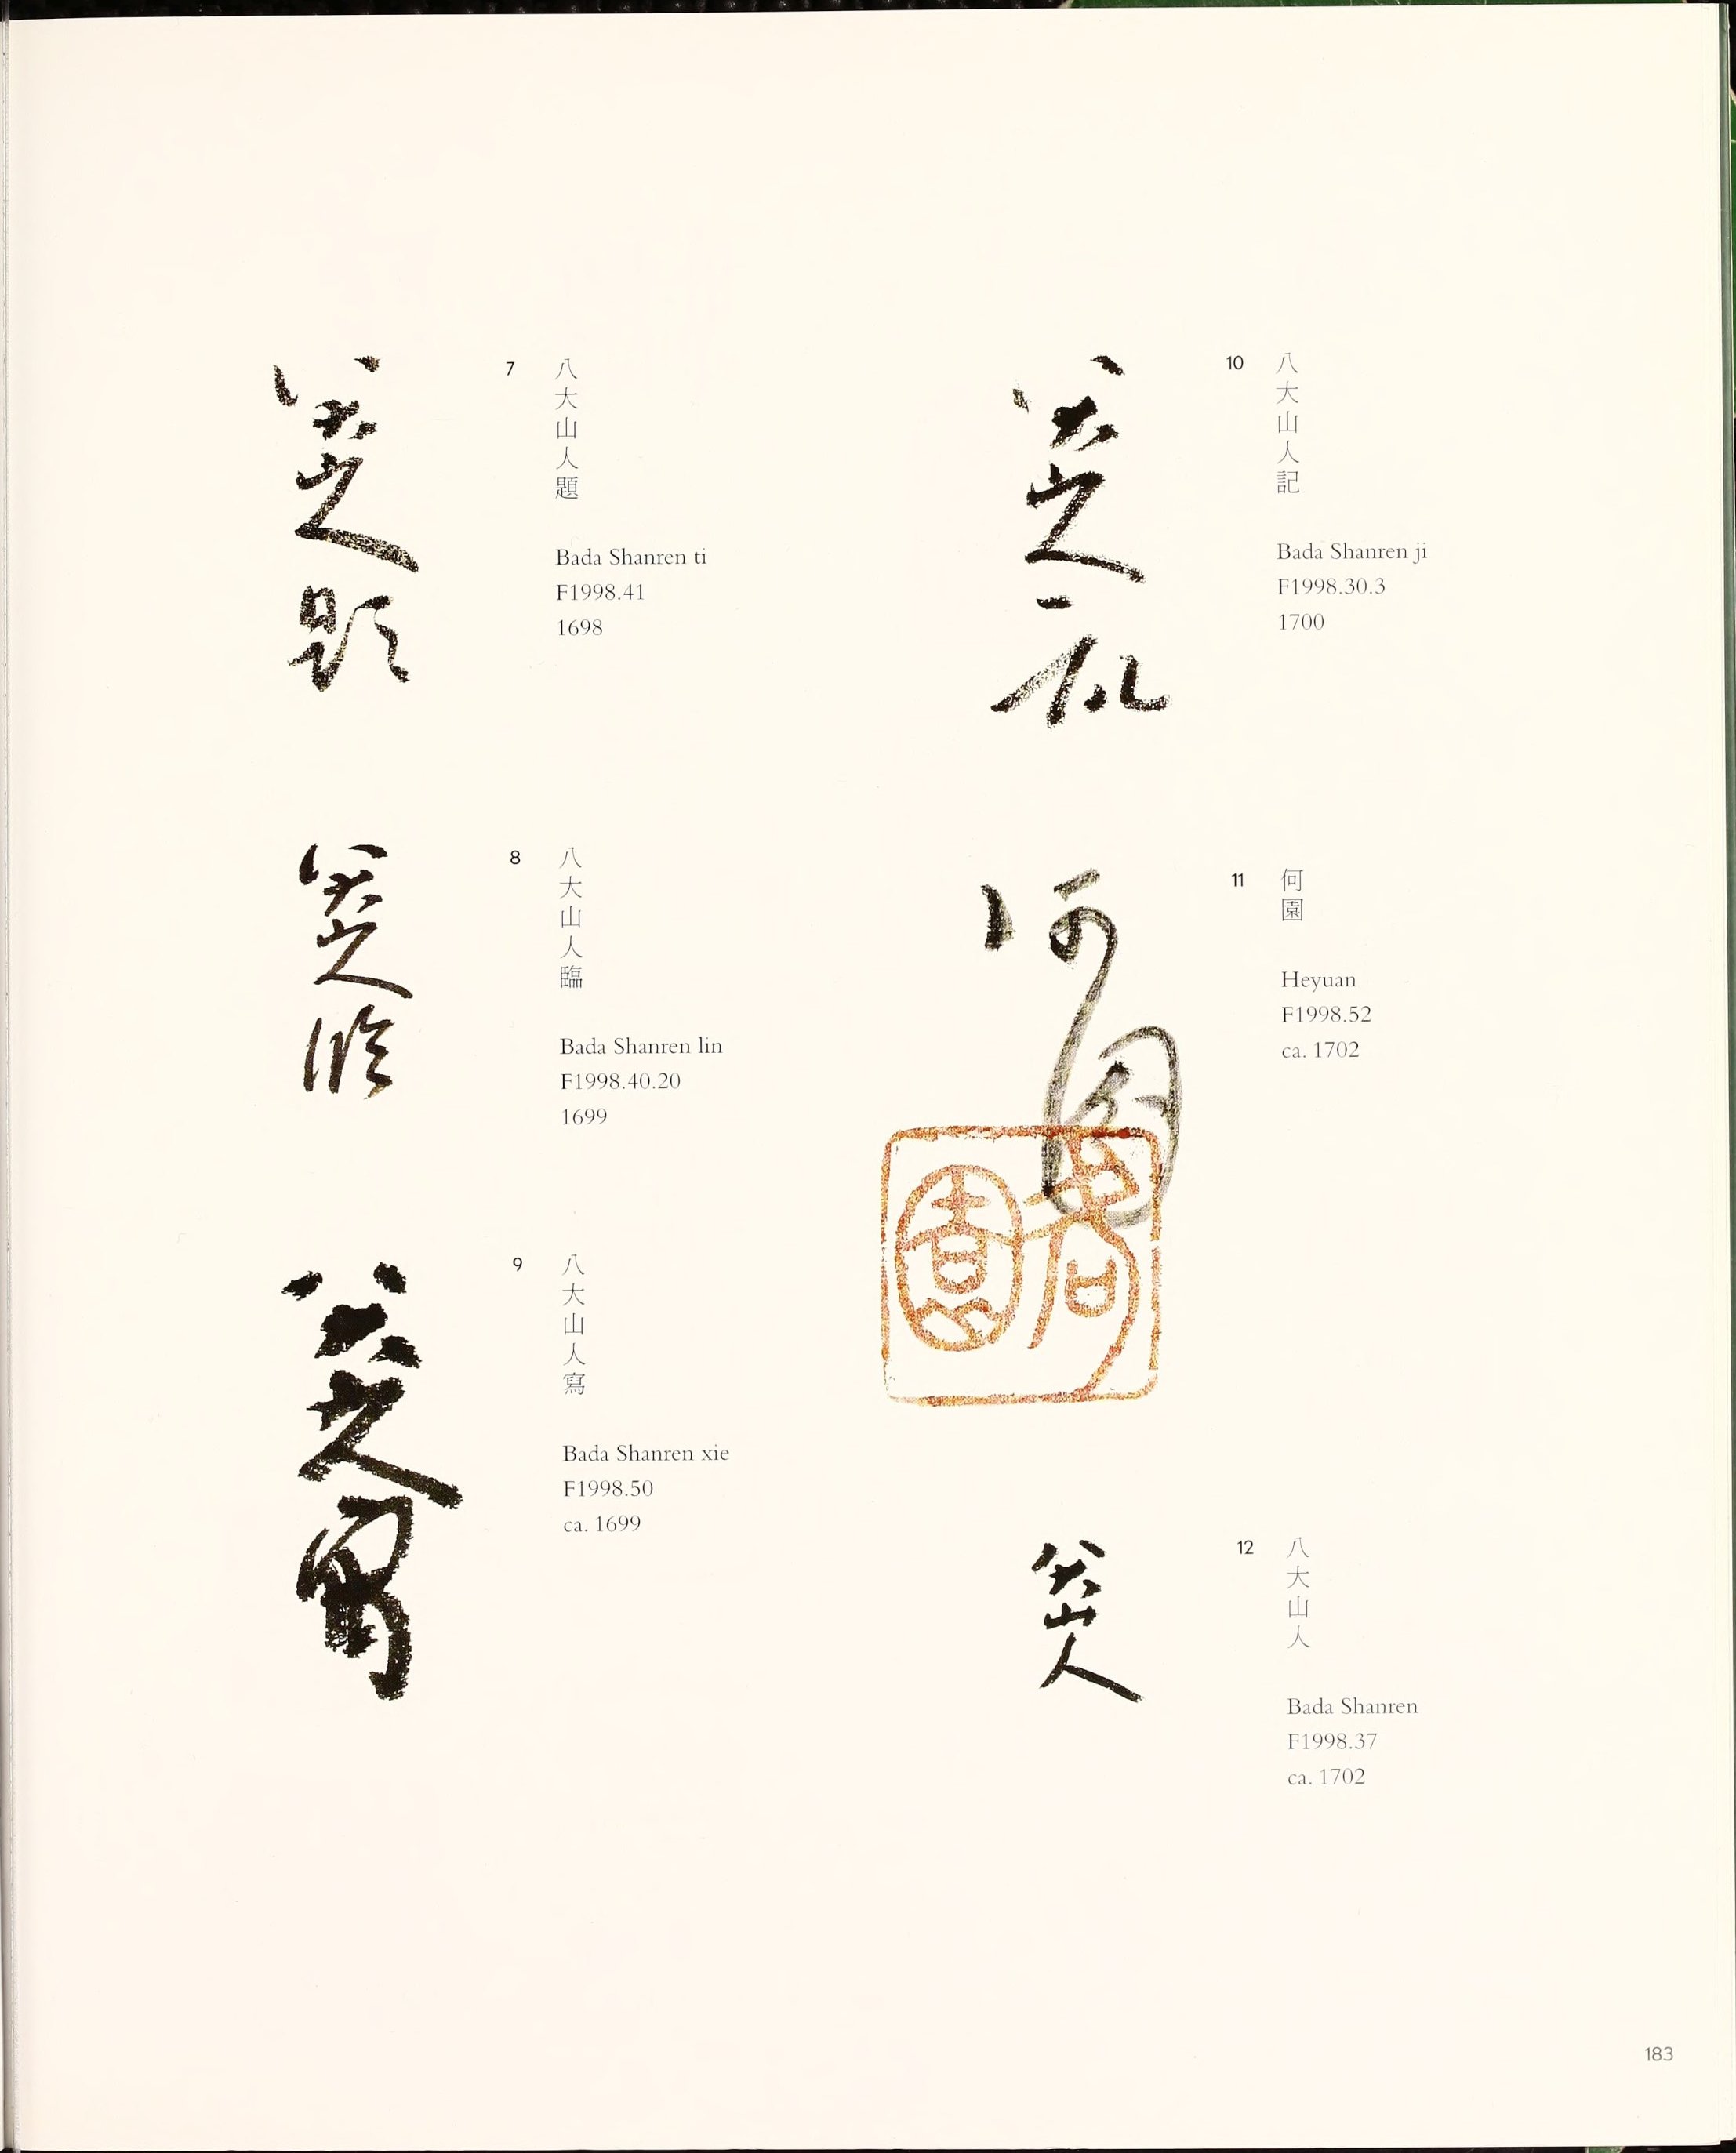 八大山人題
7
八大山人題
Bada Shanren ti
F1998.41
1698
八大山人臨
8
八大山人臨
Bada Shanren lin
F1998.40.20
1699
八大山人寫
9
八大山人寫
Bada Shanren xie
F1998.50
ca. 1699
八大山人記
10
八大山人記
Bada Shanren ji
F1998.30.3
1700
何園
11
何園
Heyuan
F1998.52
ca. 1702
何園
八大山人
12
八大山人
Bada Shanren
F1998.37
ca. 1702
183